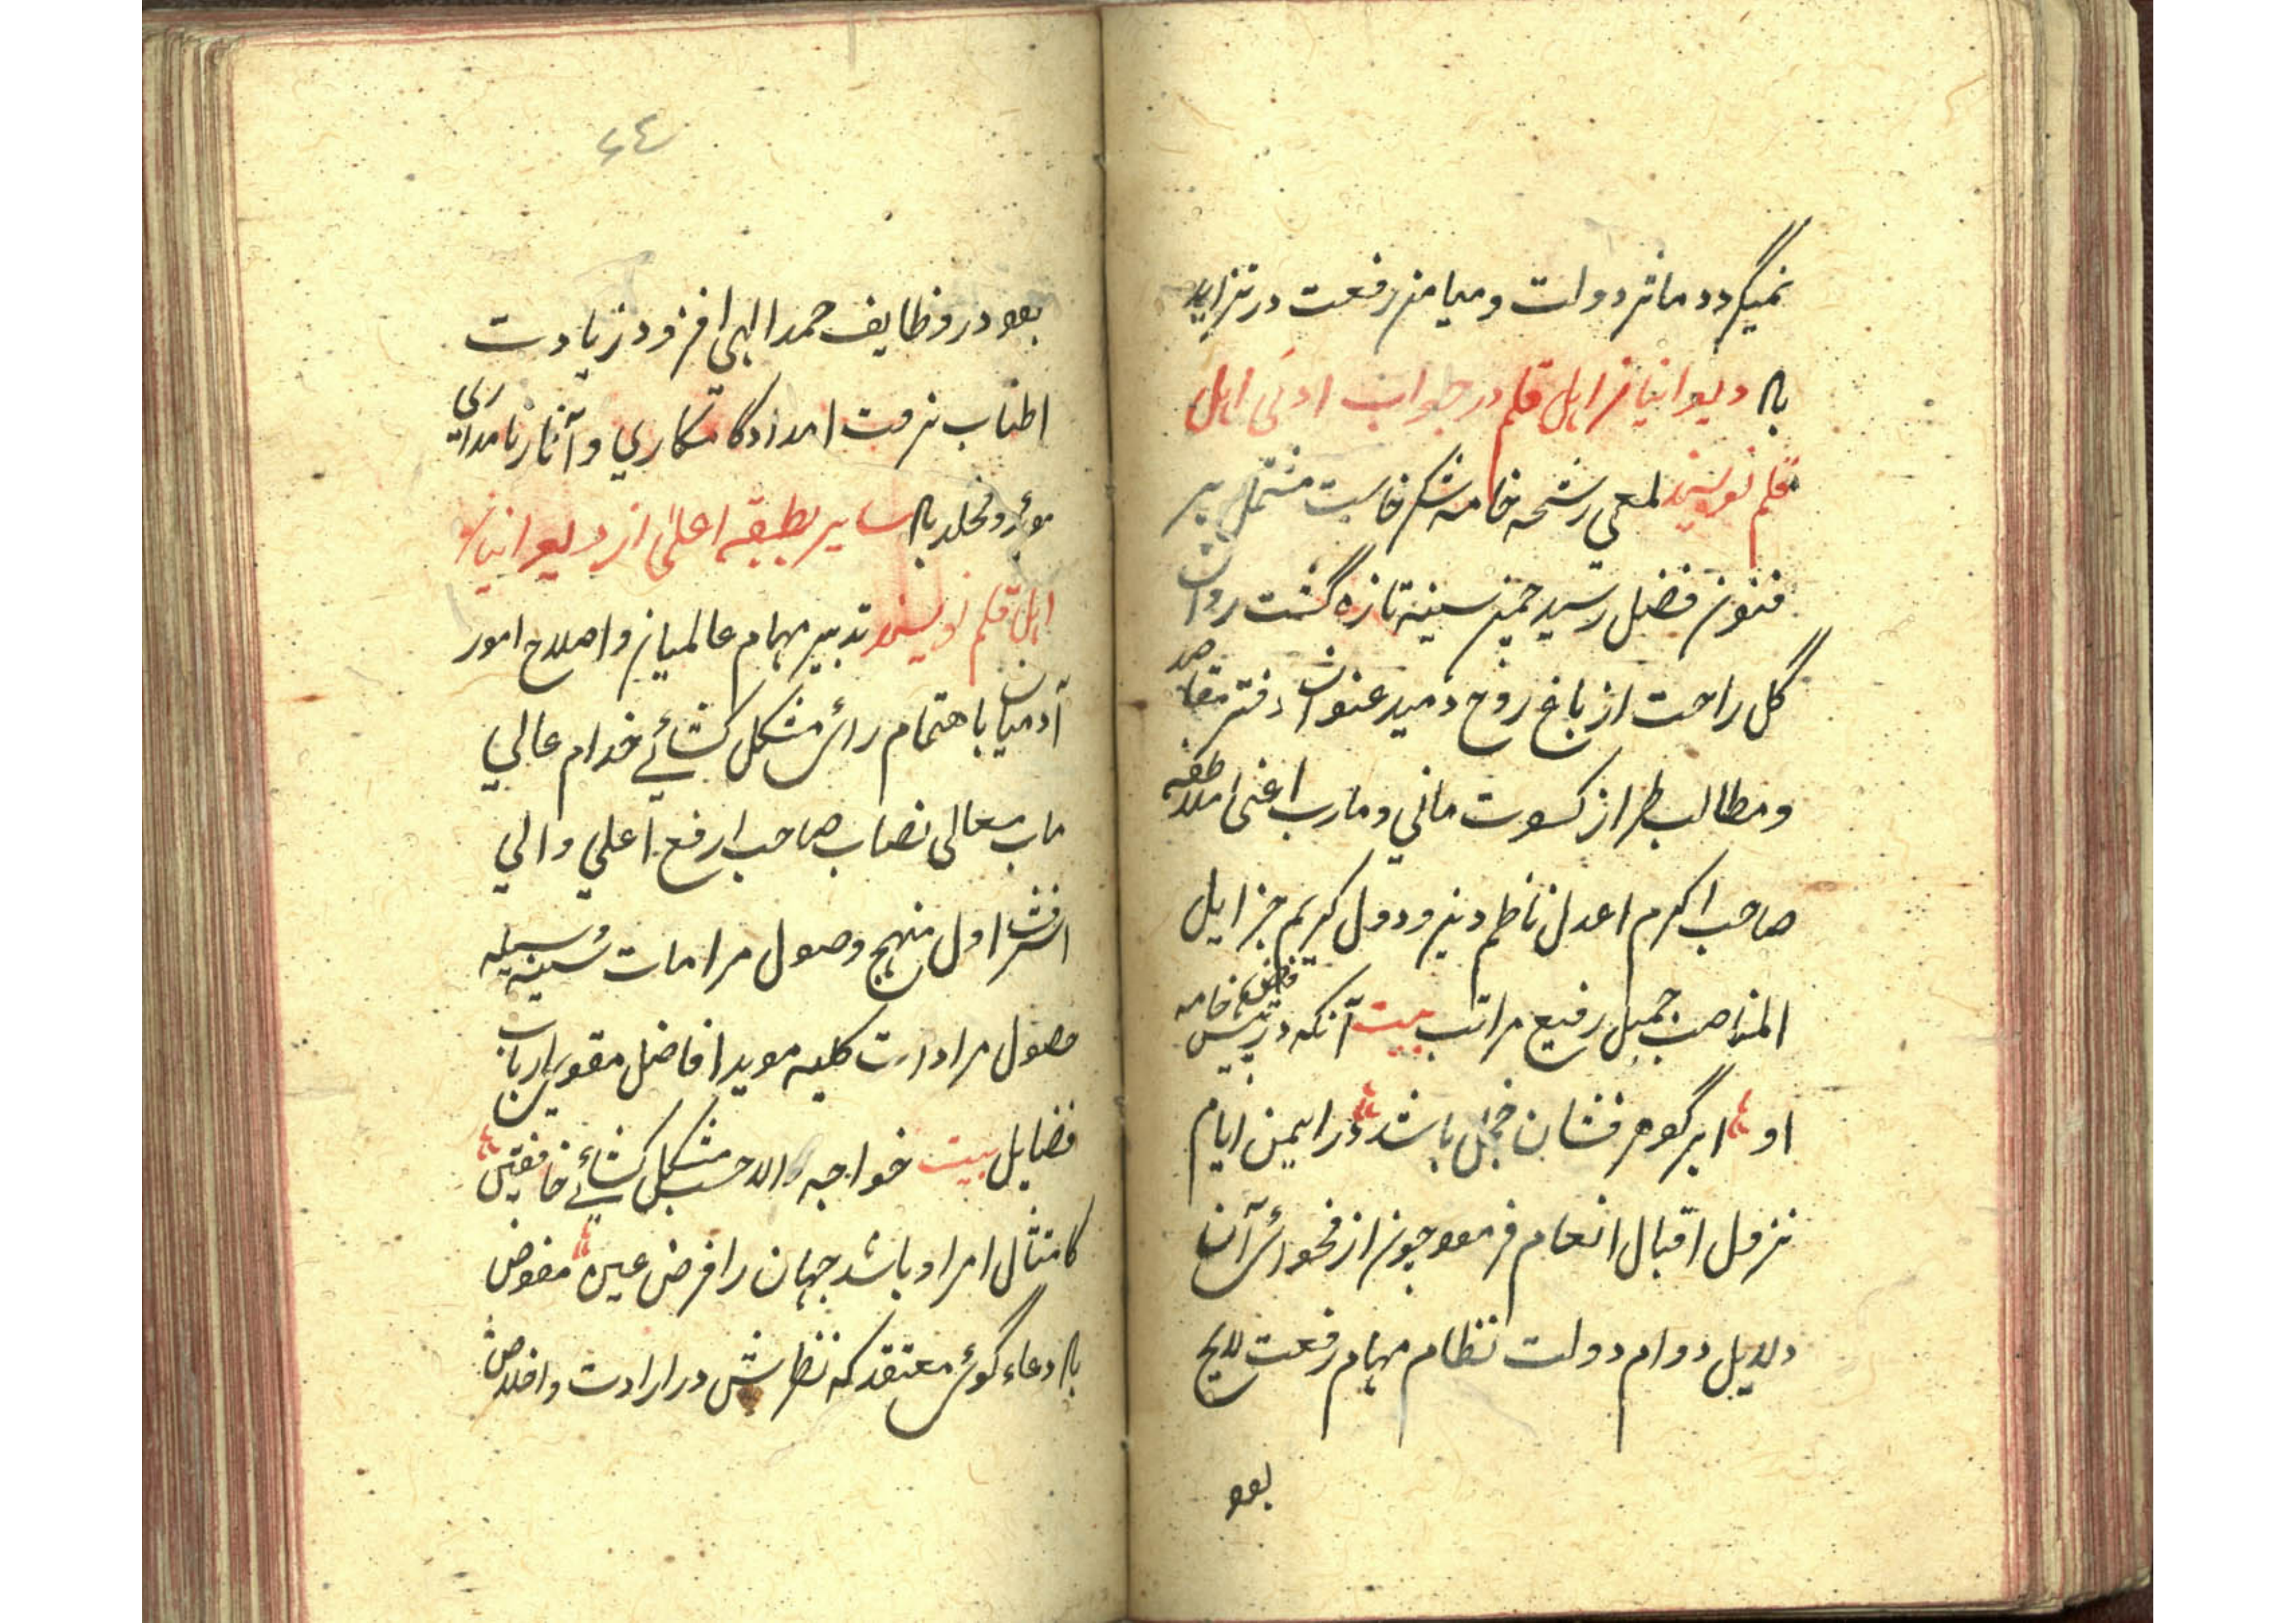 نمیگردد ماثر دولت و میامن رفعت در تزاید
به دیوانیان اهل قلم در جواب ادنی اهل
قلم نویسند لمعی رشحه خامه شکر خاست مشتمل بر
فنون فضل رسید چمن سینه تازه گشت روان
گل راحت از باغ روح دمید عنوان دفتر مقاصد
و مطالب طراز کسوت مانی و مارب اعنی ملاطفه
صاحب اکرم اعدل ناظم دین و دول کریم جزایل
المناصب جمیل رفیع مراتب بیت آنکه در پیش خامه
او ابر گوهر فشان خجل باشد در ایمن ایام
نزول اقبال انعام فرمود چون از فحوائ آن
دلایل دوام دولت نظام مهام رفعت لایح
بود
٤٤
بود در وظایف حمد الهی افزود زیادت
اطناب نرفت امداد کامکاری و آثار نامداری
موبد و مخلد به سایر بطبقه اعلی از دیوانیان
اهل قلم نویسند تدبیر مهام عالمیان و اصلاح امور
آدمیان باهتمام رائ مشکل کشائے خدام عالی
ماب معالی نصاب صاحب ارفع اعلی والی
اشرف اول منهج وصول مرامات سنیه وسیله
حصول مرادات کلیه موید افاضل مقوی ارباب
فضایل بیت خواجه مشکل کشائے خافقین
کامتثال امر او باشد جهان را فرض عین مفوض
به دعاء گوئ معتقد که نظرش در ارادت و اخلاص